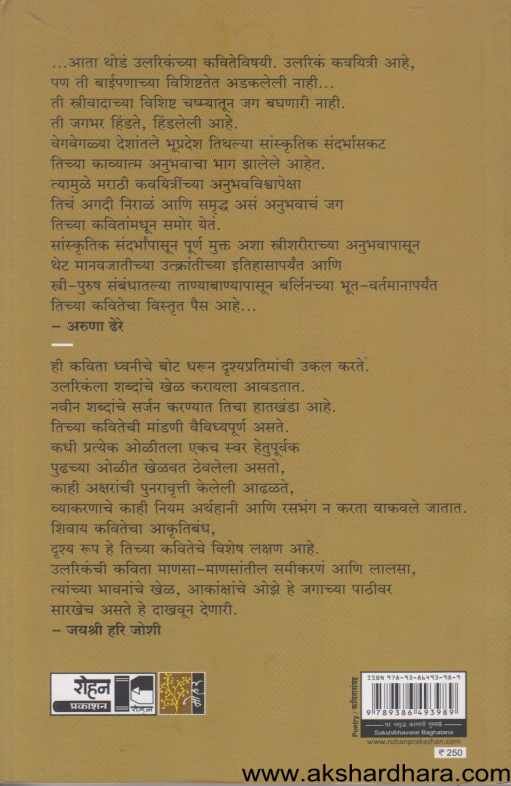 ...आता थोडं उलरिकंच्या कवितेविषयी. उलरिकं कवयित्री आहे,
पण ती बाईपणाच्या विशिष्टतेत अडकलेली नाही...
ती स्त्रीवादाच्या विशिष्ट चष्म्यातून जग बघणारी नाही.
ती जगभर हिंडते, हिंडलेली आहे.
वेगवेगळ्या देशांतले भूप्रदेश तिथल्या सांस्कृतिक संदर्भासकट
तिच्या काव्यात्म अनुभवाचा भाग झालेले आहेत.
त्यामुळे मराठी कवयित्रींच्या अनुभवविश्वापेक्षा
तिचं अगदी निराळं आणि समृद्ध असं अनुभवाचं जग
तिच्या कवितांमधून समोर येतं.
सांस्कृतिक संदर्भांपासून पूर्ण मुक्त अशा स्त्रीशरीराच्या अनुभवापासून
थेट मानवजातीच्या उत्क्रांतीच्या इतिहासापर्यंत आणि
स्त्री-पुरुष संबंधातल्या ताण्याबाण्यापासून बर्लिनच्या भूत-वर्तमानापर्यंत
तिच्या कवितेचा विस्तृत पैस आहे...
– अरुणा ढेरे
ही कविता ध्वनीचे बोट धरून दृश्यप्रतिमांची उकल करते.
उलरिकंला शब्दांचे खेळ करायला आवडतात.
नवीन शब्दांचे सर्जन करण्यात तिचा हातखंडा आहे.
तिच्या कवितेची मांडणी वैविध्यपूर्ण असते.
कधी प्रत्येक ओळीतला एकच स्वर हेतुपूर्वक
पुढच्या ओळीत खेळवत ठेवलेला असतो,
काही अक्षरांची पुनरावृत्ती केलेली आढळते,
व्याकरणाचे काही नियम अर्थहानी आणि रसभंग न करता वाकवले जातात.
शिवाय कवितेचा आकृतिबंध,
दृश्य रूप हे तिच्या कवितेचे विशेष लक्षण आहे.
उलरिकंची कविता माणसा-माणसांतील समीकरणं आणि लालसा,
त्यांच्या भावनांचे खेळ, आकांक्षांचे ओझे हे जगाच्या पाठीवर
सारखेच असते हे दाखवून देणारी.
– जयश्री हरि जोशी
रोहन
प्रकाशन
रोहन
मोहर
ISBN 978-93-86493-98-9
9 789386 493989
Poetry / कवितासंग्रह
Sakshibhavane Baghatana
www.rohanprakashan.com
₹ 250
www.akshardhara.com